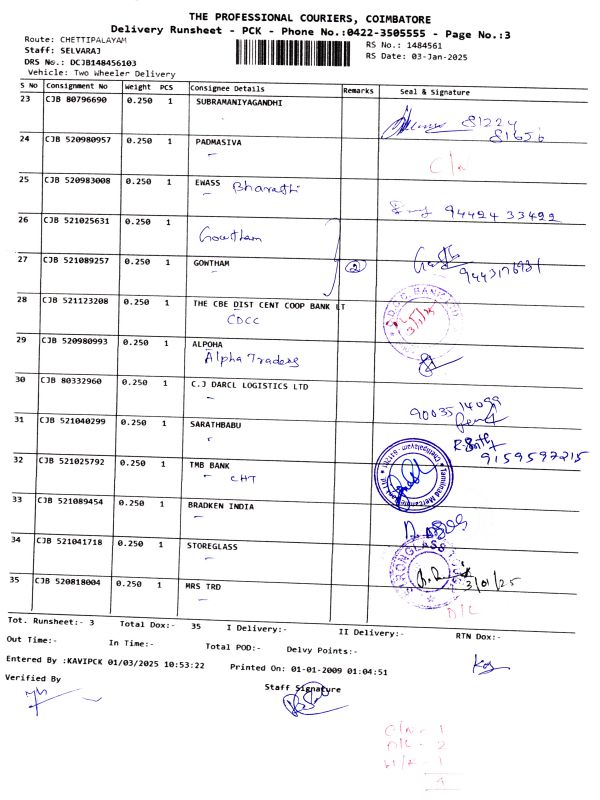 THE PROFESSIONAL COURIERS, COIMBATORE
Delivery Runsheet - PCK - Phone No.:0422-3505555 - Page No.:3
Route: CHETTIPALAYAM
RS No.: 1484561
Staff: SELVARAJ
RS Date: 03-Jan-2025
DRS No.: DCJB148456103
Vehicle: Two Wheeler Delivery
S No Consignment No Weight PCS Consignee Details Remarks Seal & Signature
23 CJB 80796690 0.250 1 SUBRAMANIYAGANDHI
81224
81656
24 CJB 520980957 0.250 1 PADMASIVA
25 CJB 520983008 0.250 1 EWASS Bharathi
94424 33422
26 CJB 521025631 0.250 1
Gowtham
27 CJB 521089257 0.250 1 GOWTHAM 2
9443176931
28 CJB 521123208 0.250 1 THE CBE DIST CENT COOP BANK LT
CDCC
29 CJB 520980993 0.250 1 ALPOHA
Alpha Traders
30 CJB 80332960 0.250 1 C.J DARCL LOGISTICS LTD
90035 14099
31 CJB 521040299 0.250 1 SARATHBABU
9159597215
32 CJB 521025792 0.250 1 TMB BANK
CHT
33 CJB 521089454 0.250 1 BRADKEN INDIA
34 CJB 521041718 0.250 1 STOREGLASS
3/01/25
35 CJB 520818004 0.250 1 MRS TRD
D/L
Tot. Runsheet:- 3 Total Dox:- 35 I Delivery:- II Delivery:- RTN Dox:-
Out Time:- In Time:- Total POD:- Delvy Points:-
Entered By :KAVIPCK 01/03/2025 10:53:22 Printed On: 01-01-2009 01:04:51
Verified By
Staff Signature
C/N - 1
D/L - 2
- 1
4